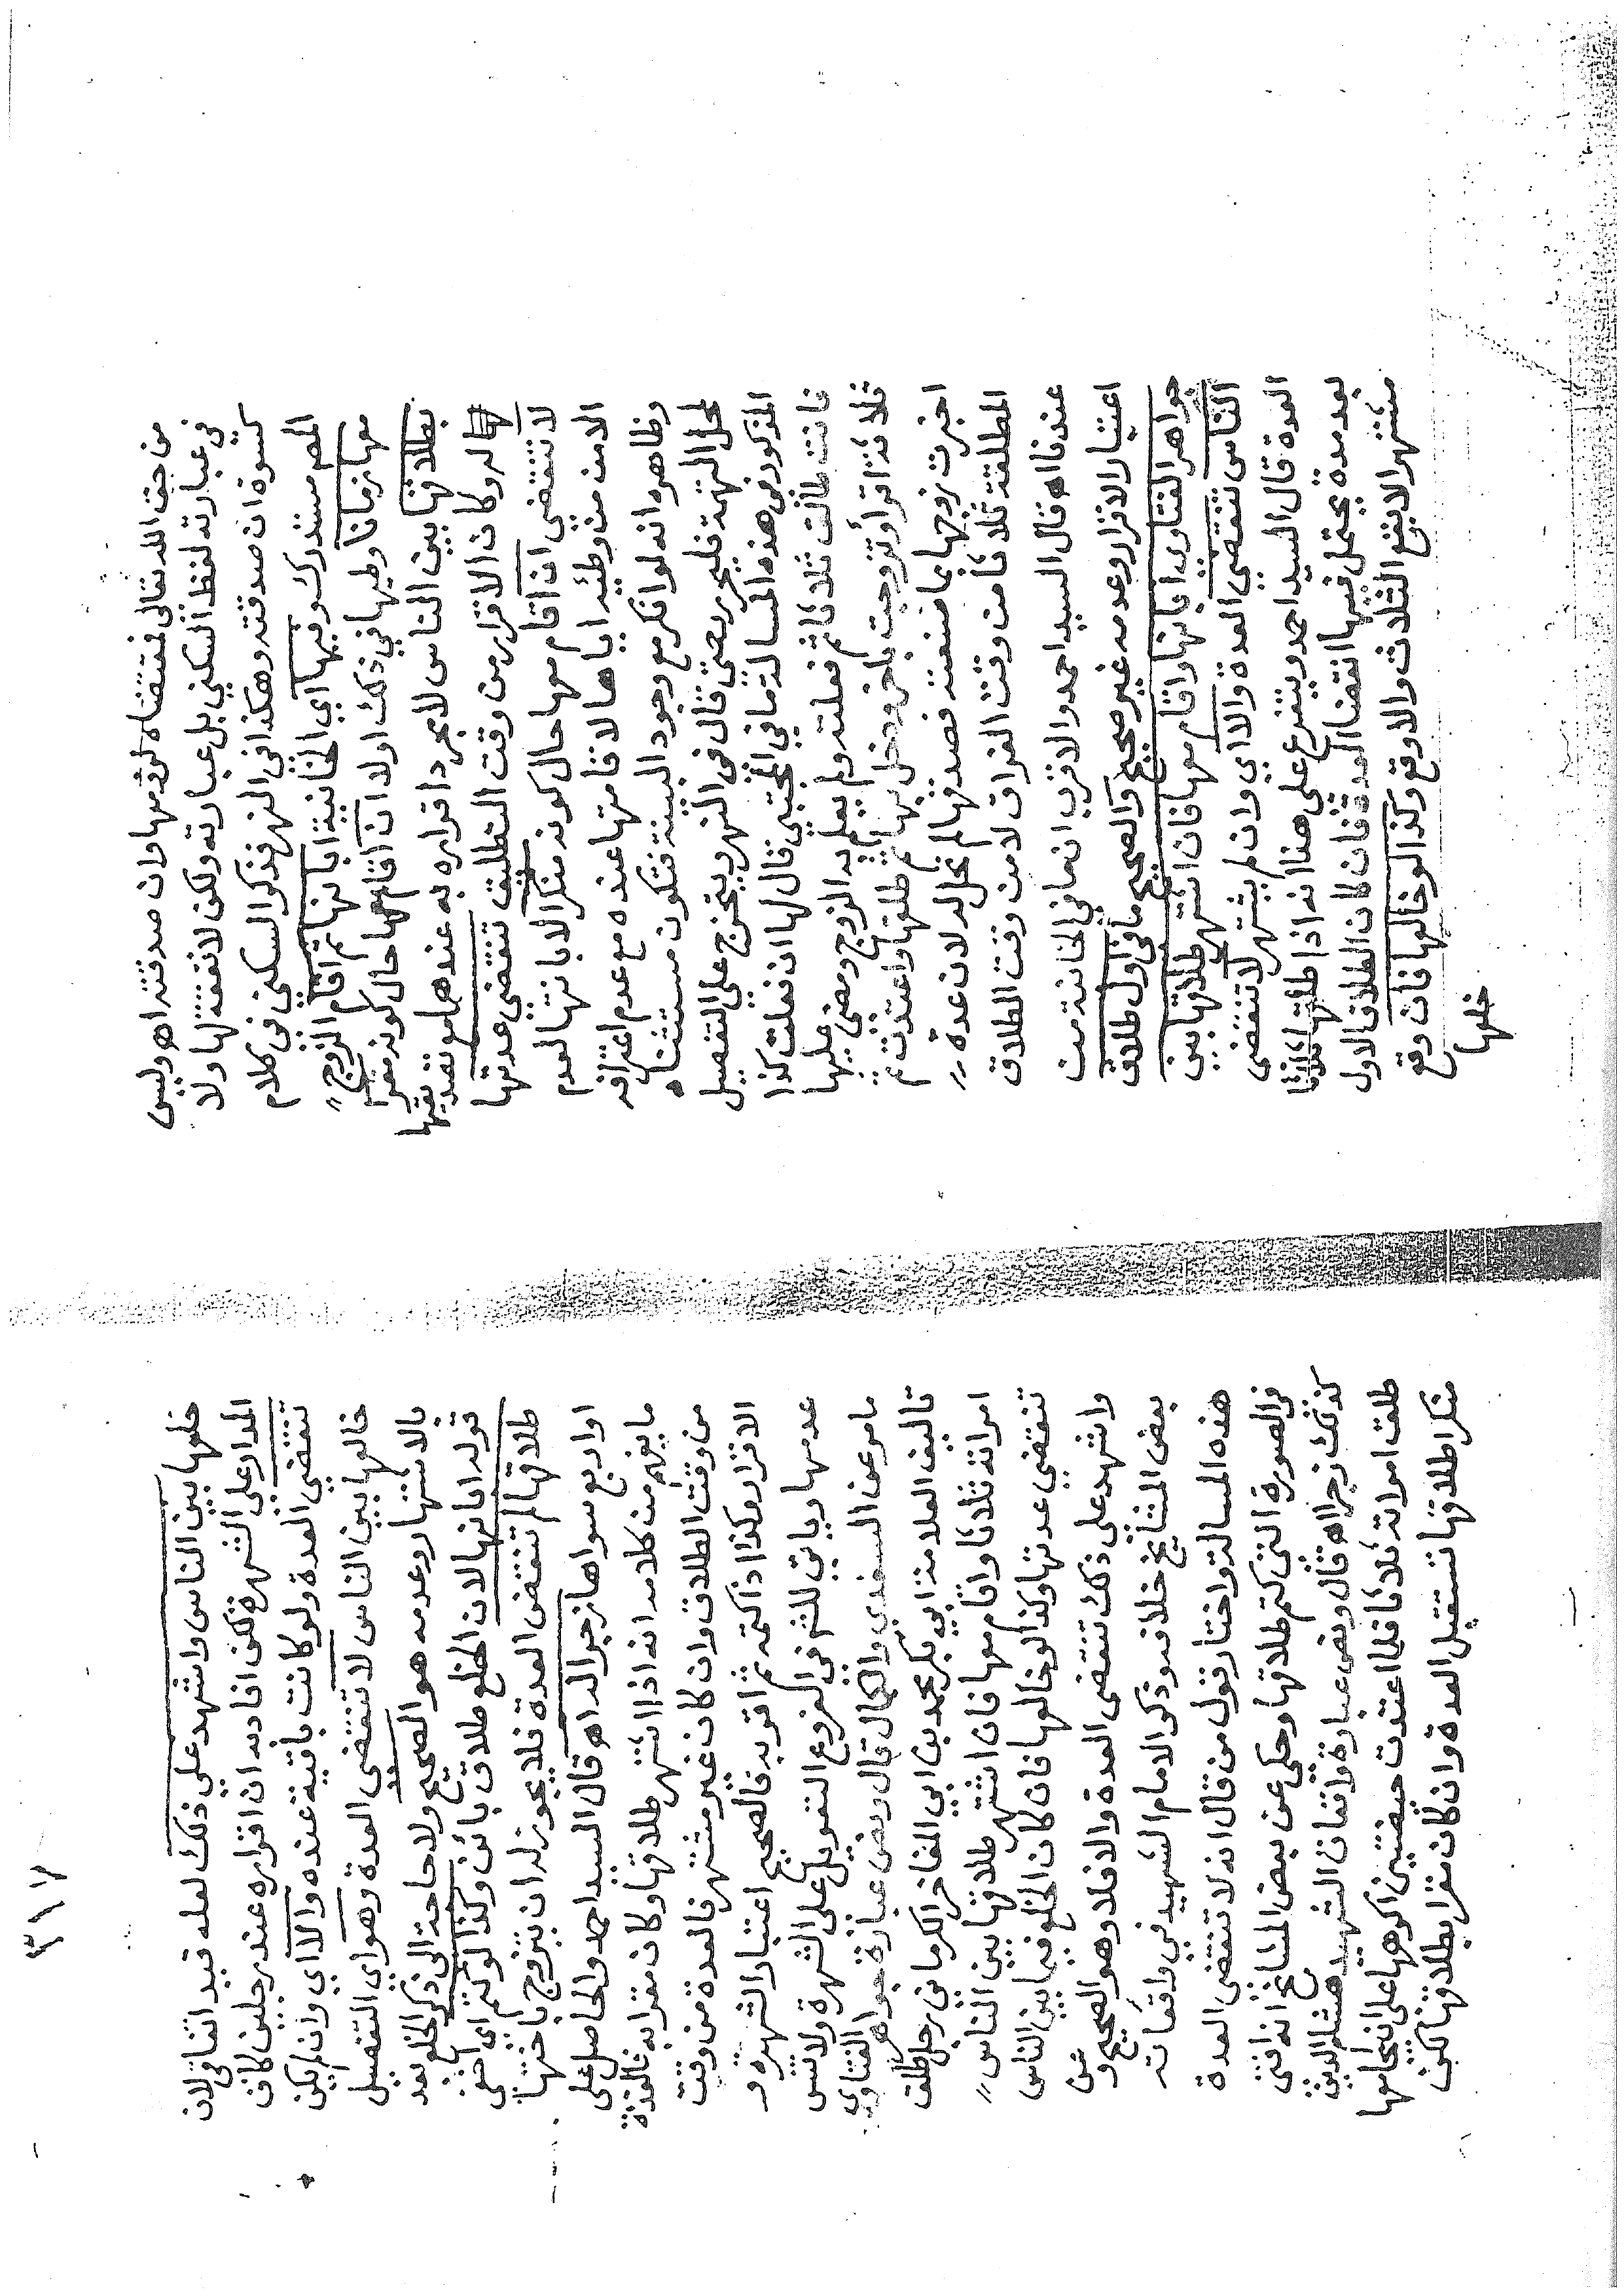 من حق الله تعالى فمقتضاه لزومها وان صدقته اهـ وليس
في عبارته لفظ السكني بل عبارته ولكن لا نفقة لها ولا
كسوة ان صدقته وهكذا في النهر فذكر السكني في كلام
المصر مستدرك وفيها اي الخانية ابانها ثم اقام الزوج "
معها زمانا وطيها في ذلك اولا ان اقام معها حال كونه مقرا
بطلاقها بين الناس لا بمجرد اقراره به عندها مو تقد يقيها
له لو كان الاقرار من وقت التطليق تنقضي عدتها
لا تنقضي ان اقام معها حال كونه منكرا لابانتها لعدم
الامن من وطئه اياها لاقامتها عنده مع عدم اعترافه
وظاهره انه لو انكر مع وجود البينة فتكون مستثناه
لمحل التهمة فليحرر بصي قال في النهر ويتخرج على التفصيل
المذكور في هذه المسالة ما في المجتبي قال لها ان فعلت كذا
فانت طالق ثلاثا ثم فعلته ولم يعلم به الزوج ومضي عليها
ثلاثة اقراء وتزوجت باخر ودخل بها ثم طلقها واعتدت ثم
اخبرت زوجها بما صنعت فصدقها لم تحل له لان عدة "
المطلقة ثلاثا من وقت الفراق لا من وقت الطلاق
عندنا اهـ قال السيد احمد والاقرب ان ما في الخانية من
اعتبار الاقرار وعدمه غير صحيح والصحيح ما في اول طلاق
جواهر الفتاوى ابانها واقام معها فان اشتهر طلاقها بين
الناس تنقضي العدة والا اي وان لم يشتهر لا تنقضي
العدة قال السيد احمد ويتفرع على هذا انه اذا طلقها ثلاثا
بعد مدة يحتمل فيها انقضا العدة فان كان الطلاق الاول
مشتهرا لا يقع الثلاث والا وقع وكذا لو خالعها فان وقع
خلعها
٣١٧
خلعها بين الناس واشهد علي ذلك لعله قيد اتفاقي لان
المدار على الشهرة لكن افاد به ان اقراره عند رجلين كاف
تنقضي العدة ولو كانت باقية عنده والا اي وان لم يكن
خالعها بين الناس لا تنقضي العدة وهو اي التفصيل
بالاشتهار وعدمه هو الصحيح ولا حاجة الى ذكر الخلع بعد
قوله ابانها لان الخلع طلاق بائن وكذا لو كتم اي اخفى
طلاقها لم تنقض العدة فلا يجوز له ان يتزوج باختها
او اربع سواها زجرا له اهـ قال السيد احمد والحاصل على
ما يفهم من كلامه انه اذا اشتهر طلاقها وكان مقرا به فالعدة
من وقت الطلاق وان كان غير مشتهر فالعدة من وقت
الاقرار وكذا اذا كتمه ثم اقر به فالصحيح اعتبار الشهرة و
عدمها وياتي للشر في الفروع التعويل على الشهرة ولا تنس
ما مر عن السغدي والكمال قال ونص عبارة جواهر الفتاوى
تاليف العلامة ابي بكر محمد بن ابي المفاخر الكرماني رجل طلق
امراته ثلاثا واقام معها فان اشتهر طلاقها بين الناس "
تنقضي عدتها وكذا لو خالعها فان كان الخلع فيما بين الناس
واشهد على ذلك تنقضي العدة والا فلا وهو الصحيح و عن
بعض المشايخ خلافه وذكر الامام الشهيد في واقعاته
هذه المسالة واختار قول من قال انه لا تنقضي العدة
في الصورة التي كتم طلاقها وحكى عن بعض المشايخ انه افتى
كذلك زجرا اهـ قال ونص عبارة واقعات الشهيد هشام الدين
طلق امراته ثلاثا فلما اعتدت حيضتين اكرهها على ان يجامعها
منكرا طلاقها تستقبل العدة وان كان مقرا بطلاقها لكن